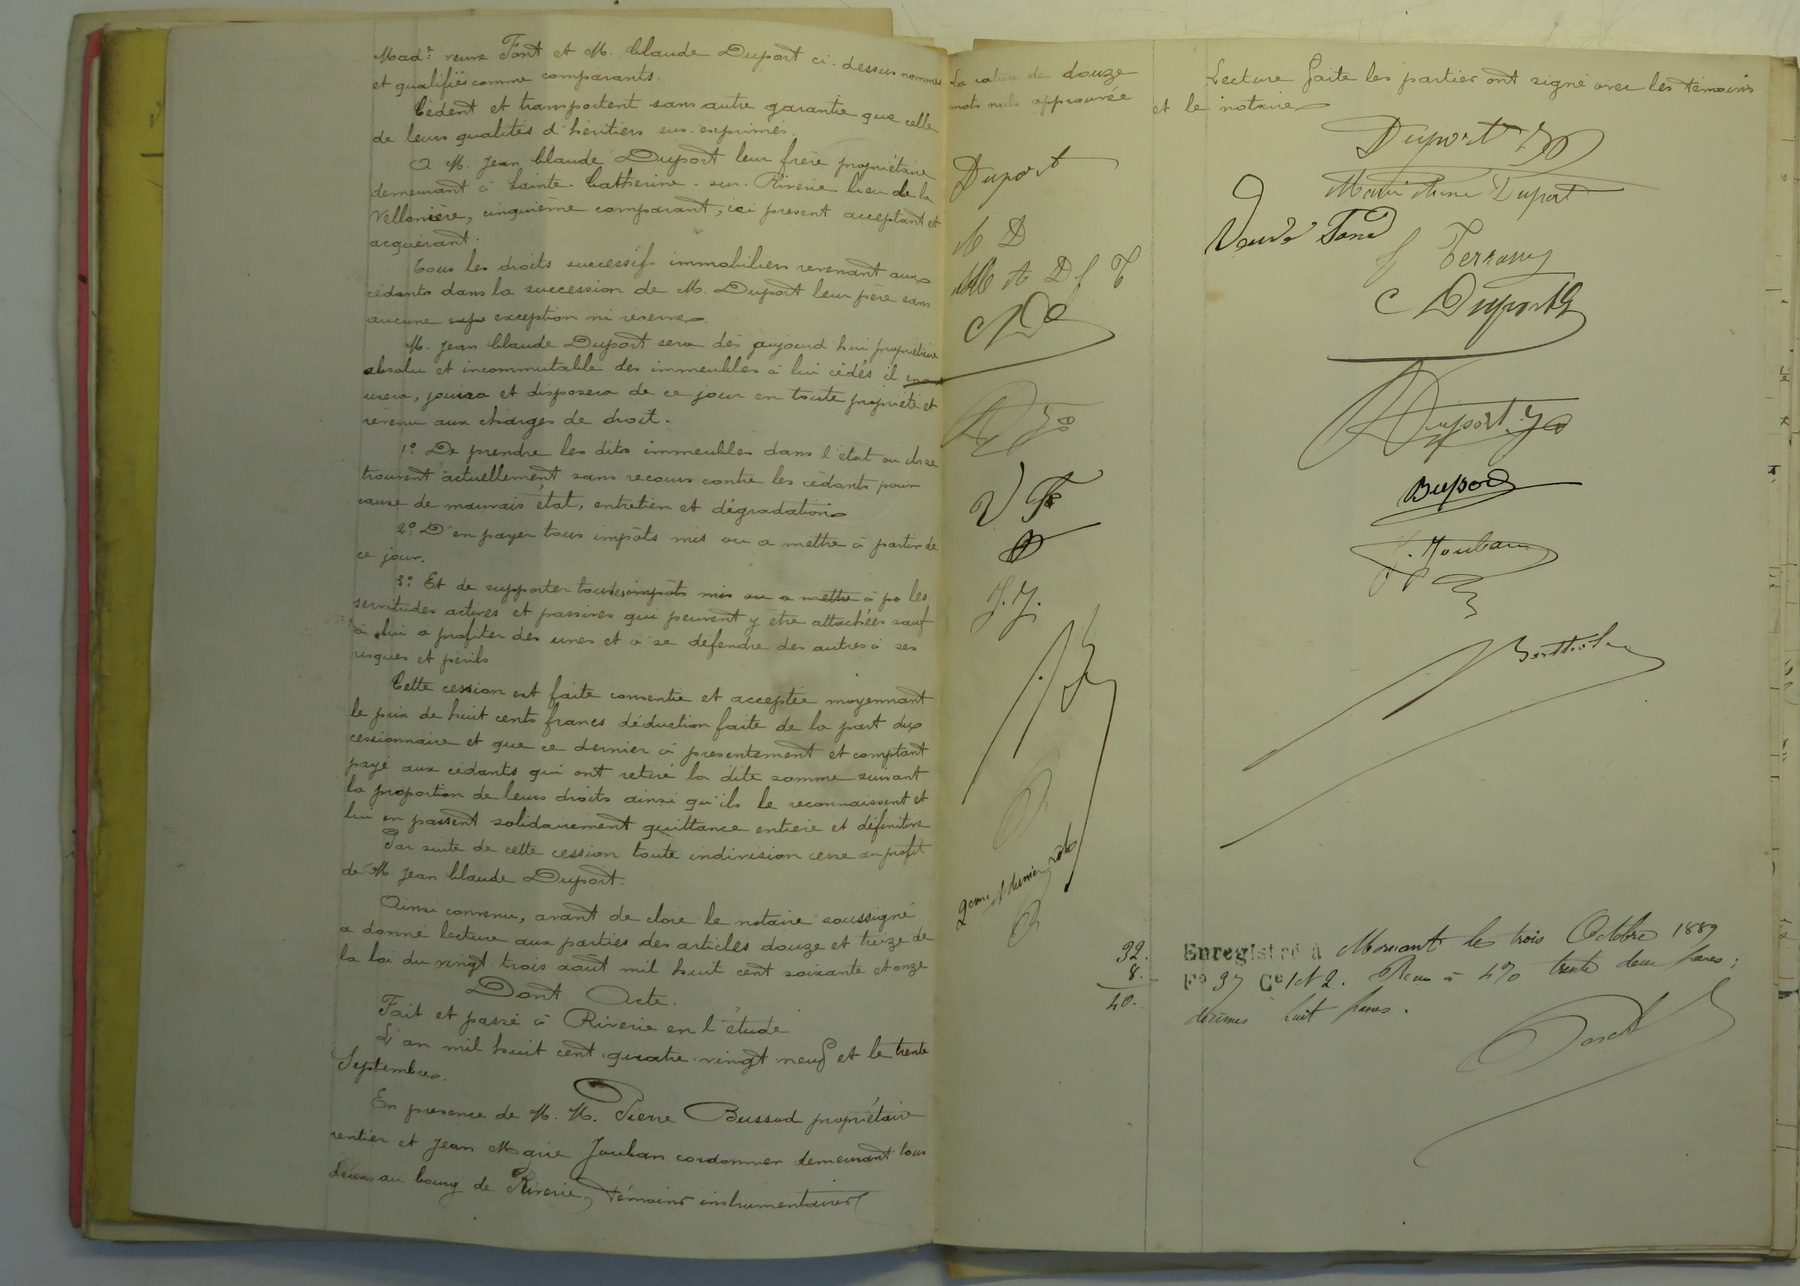 Made veuve Font et M. Claude Duport ci-dessus nommés
et qualifiés comme comparants.
Cèdent et transportent sans autre garantie que celle
de leurs qualités d'héritiers sus-exprimés.
A M. Jean Claude Duport leur frère propriétaire
demeurant à Sainte-Catherine-sur-Riverie lieu de la
Vellonière, cinquième comparant, ici présent acceptant et
acquérant.
Tous les droits successifs immobiliers revenant aux
cédants dans la succession de M. Duport leur père sans
aucune exception ni réserve.
M. Jean Claude Duport sera dès aujourd'hui propriétaire
absolu et incommutable des immeubles à lui cédés il en
usera, jouira et disposera de ce jour en toute propriété et
revenu aux charges de droit.
1° De prendre les dits immeubles dans l'état où ils se
trouvent actuellement sans recours contre les cédants pour
cause de mauvais état, entretien et dégradation
2° D'en payer tous impôts mis ou a mettre à partir de
ce jour.
3° Et de supporter toutes impôts mis ou a mettre à pa les
servitudes actives et passives qui peuvent y être attachées sauf
à lui à profiter des unes et à se défendre des autres à ses
risques et périls
Cette cession est faite consentie et acceptée moyennant
le prix de huit cents francs déduction faite de la part du
cessionnaire et que ce dernier à présentement et comptant
payé aux cédants qui ont retiré la dite somme suivant
la proportion de leurs droits ainsi qu'ils le reconnaissent et
lui en passent solidairement quittance entière et définitive
Par suite de cette cession toute indivision cesse au profit
de M. Jean Claude Duport.
Ainsi convenu, avant de clore le notaire soussigné
a donné lecture aux parties des articles douze et treize de
la loi du vingt trois août mil huit cent soixante et onze
Dont Acte.
Fait et passé à Riverie en l'étude
L'an mil huit cent quatre-vingt neuf et le trente
Septembre.
En présence de M. M. Pierre Bussod propriétaire
rentier et Jean Marie Jouban cordonnier demeurant tous
deux au bourg de Riverie, témoins instrumentaires
La rature de douze
mots nuls approuvée
Duport
M A D J T
V F
J. J.
Lecture faite les parties ont signé avec les témoins
et le notaire
Duport
Marie Anne Duport
Veuve Fond
J Terrasse
C Duport
Duport
J. Jouban
32.
8.
40.
Enregistré à Mornant le trois Octobre 1889
F° 37 Ce 1 N 2. Reçu à 4% trente deux francs;
décimes huit francs.